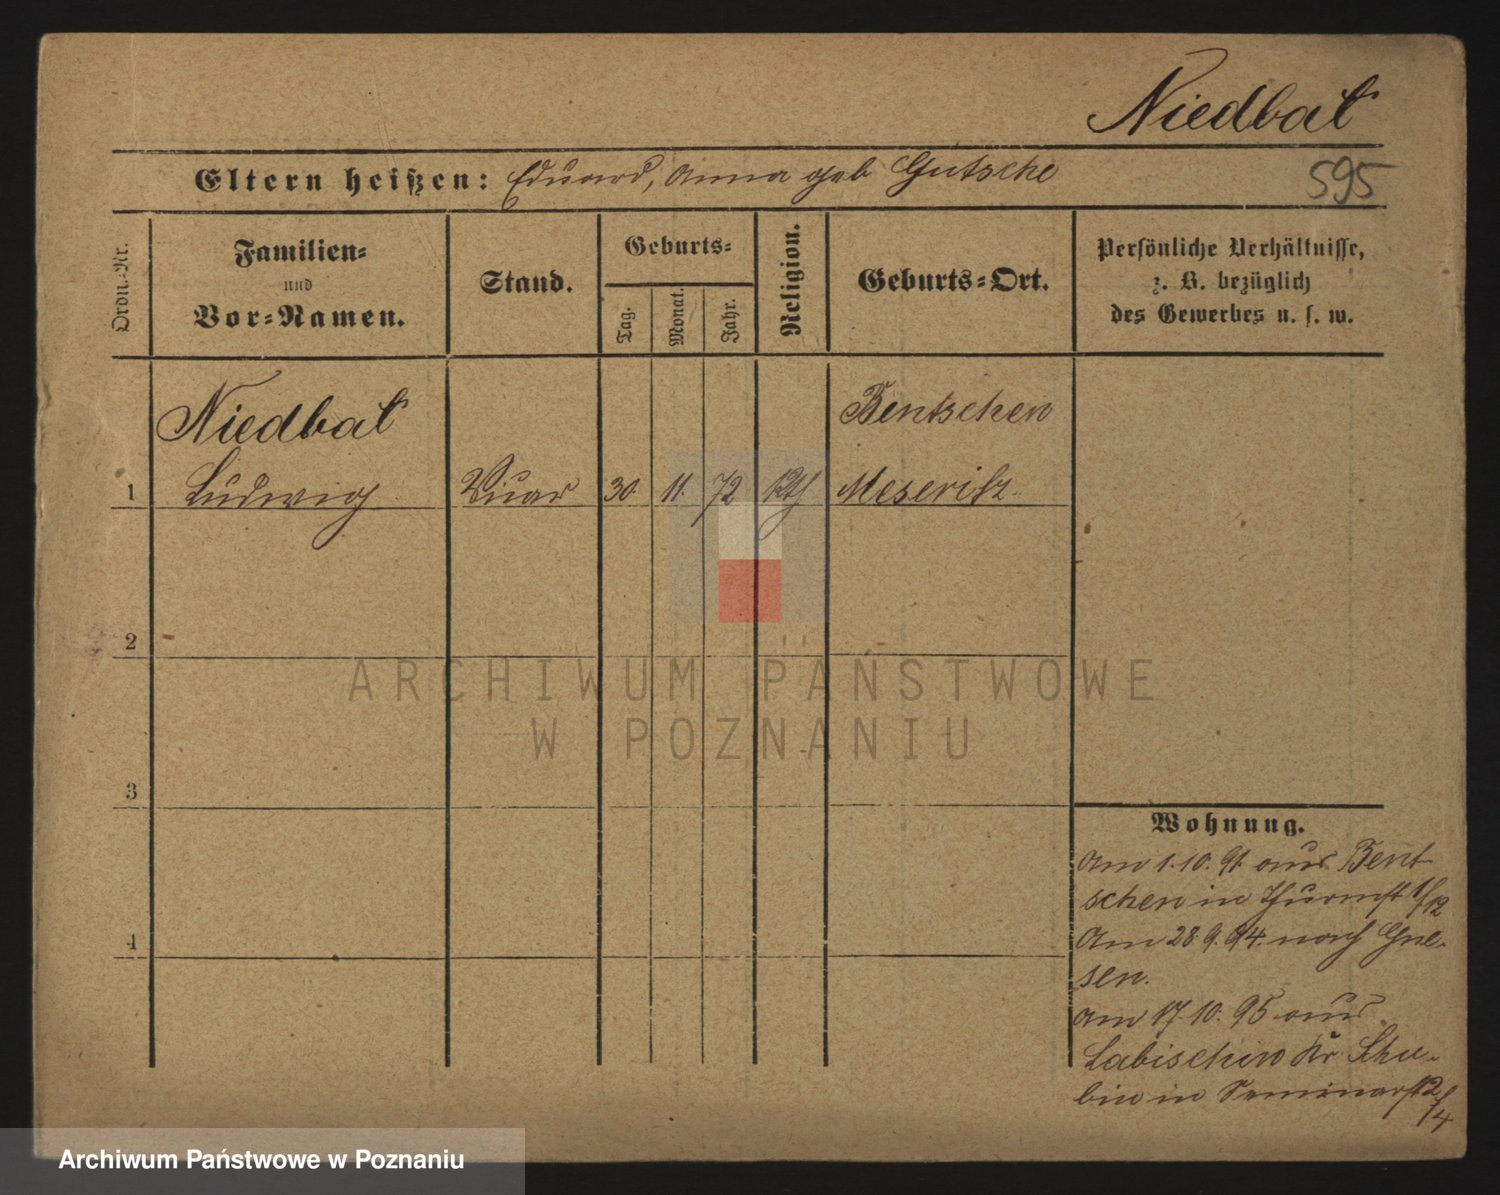 Niedbał
Eltern heißen: Eduard, Anna geb Gutsche
595
Ordn.-Nr.
Familien-
und
Vor-Namen.
Stand.
Geburts-
Tag.
Monat.
Jahr.
Religion.
Geburts-Ort.
Persönliche Verhältnisse,
z. B. bezüglich
des Gewerbes u. s. w.
Niedbał
Bentschen
1 Ludwig Vicar 30. 11. 72 kth Meseritz.
2
ARCHIWUM PAŃSTWOWE
W POZNANIU
3
Wohnung.
Am 1.10.91. aus Bent-
schen in Thurmst 1/12
Am 28.9.94. nach Gne-
sen.
Am 17.10.95 aus
Labischin Kr Schu-
bin in Seminarst 2/4
4
Archiwum Państwowe w Poznaniu